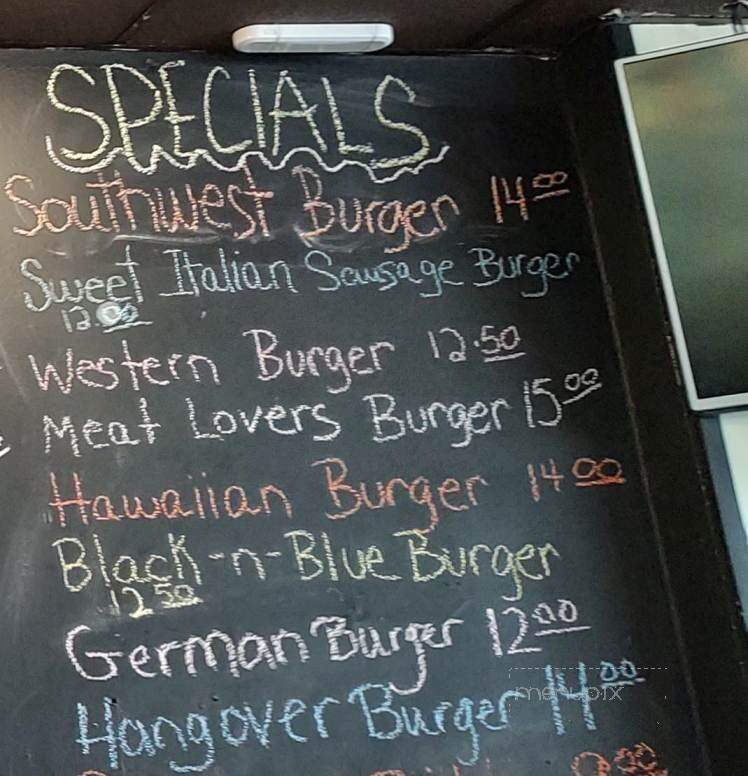 SPECIALS
Southwest Burger 14⁰⁰
Sweet Italian Sausage Burger
12.00
Western Burger 12.50
Meat Lovers Burger 15⁰⁰
Hawaiian Burger 14⁰⁰
Black-n-Blue Burger
12⁵⁰
German Burger 12⁰⁰
menupix
Hangover Burger 14⁰⁰